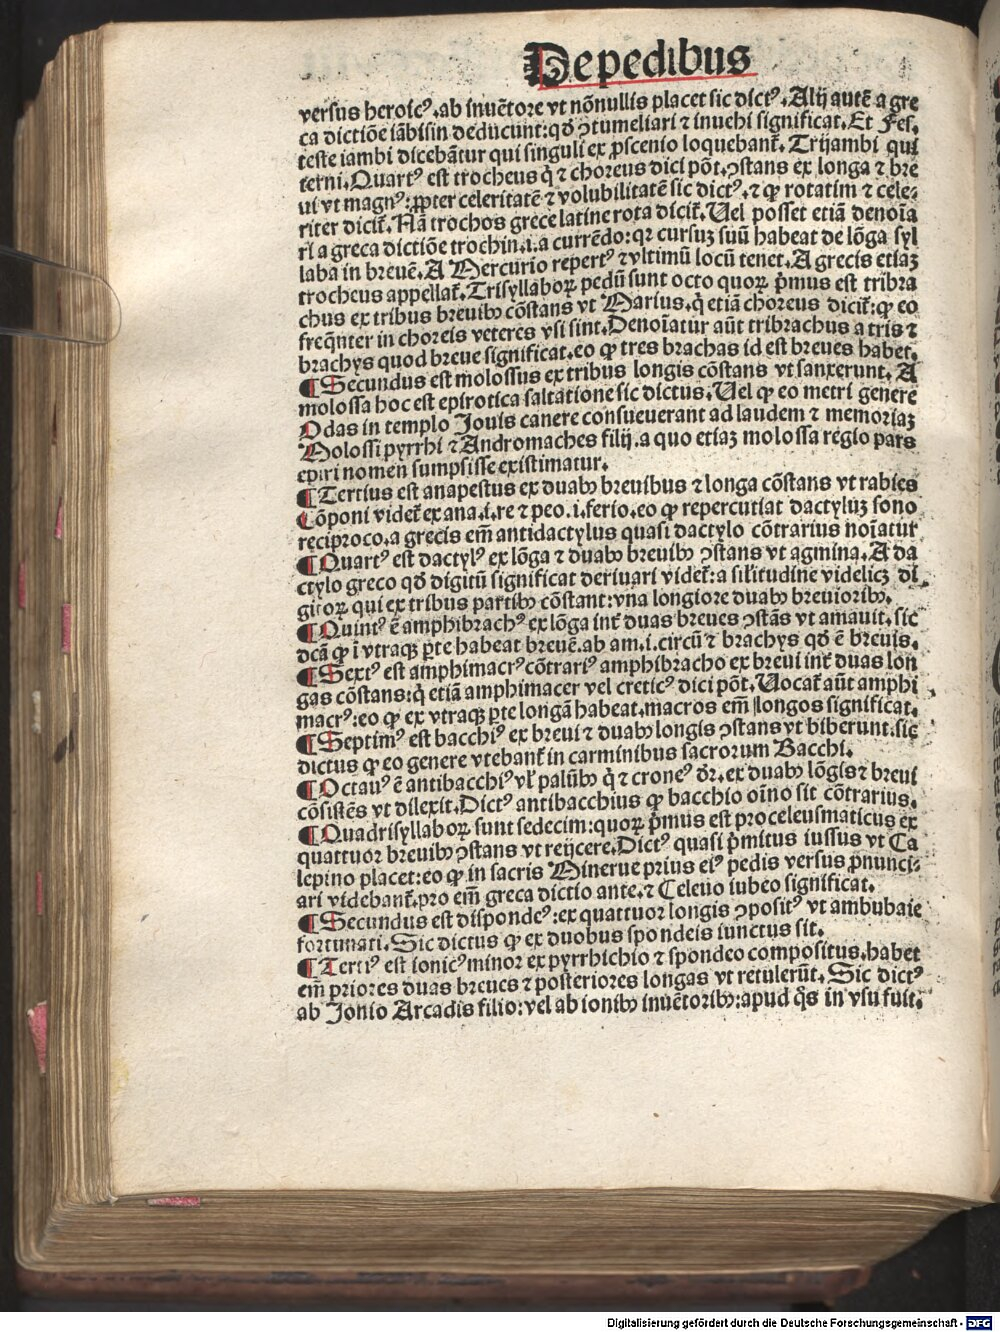 De pedibus
versus heroicꝰ. ab inuẽtore vt nõnullis placet sic dictꝰ. Alij autẽ a gre
ca dictiõe iãbisin deducunt: qđ ꝯtumeliari ⁊ inuehi significat. Et Fes.
teste iambi dicebãtur qui singuli ex ꝓscenio loquebant̃. Trijambi qui
terni. Quartꝰ est trocheus q̃ ⁊ choreus dici põt. ꝯstans ex longa ⁊ bre
ui vt magnꝰ: ꝓpter celeritatẽ ⁊ volubilitatẽ sic dictꝰ. ⁊ ꝙ rotatim ⁊ cele⸗
riter dicit̃. Nã trochos grece latine rota dicit̃. Uel posset etiã denoĩa
ri a greca dictiõe trochin .i. a currẽdo: qꝛ cursuꝫ suũ habeat de lõga syl
laba in breuẽ. A Mercurio repertꝰ ⁊ vltimũ locũ tenet. A grecis etiaꝫ
trocheus appellat̃. Trisyllaboꝝ pedũ sunt octo quoꝝ p̃mus est tribra
chus ex tribus breuibꝰ cõstans vt Marius. q̃ etiã choreus dicit̃: ꝙ eo
freq̃nter in choreis veteres vsi sint. Denoĩatur aũt tribrachus a tris ⁊
brachys quod breue significat. eo ꝙ tres brachas id est breues habet.
¶ Secundus est molossus ex tribus longis cõstans vt sanxerunt. A
molossa hoc est epirotica saltatione sic dictus. Uel ꝙ eo metri genere
Odas in templo Jouis canere consueuerant ad laudem ⁊ memoriaꝫ
Molossi pyrrhi ⁊ Andromaches filij. a quo etiaꝫ molossa regio pars
epiri nomen sumpsisse existimatur.
¶ Tertius est anapestus ex duabꝰ breuibus ⁊ longa cõstans vt rabies
Cõponi videt̃ ex ana .i. re ⁊ peo .i. ferio. eo ꝙ repercutiat dactyluꝫ sono
reciproco. a grecis em̃ antidactylus quasi dactylo cõtrarius noĩatur
¶ Quartꝰ est dactylꝰ ex lõga ⁊ duabꝰ breuibꝰ ꝯstans vt agmina. A da
ctylo greco qđ digitũ significat deriuari videt̃: a sił'itudine videlicꝫ di
gitoꝝ qui ex tribus partibꝰ cõstant: vna longiore duabꝰ breuioribꝰ.
¶ Quintꝰ ẽ amphibrachꝰ ex lõga int̃ duas breues ꝯstãs vt amauit. sic
dcã ꝙ ĩ vtraqꝫ ꝑte habeat breuẽ. ab am .i. circũ ⁊ brachys qđ ẽ breuis.
¶ Sextꝰ est amphimacrꝰ cõtrariꝰ amphibracho ex breui int̃ duas lon
gas cõstans: q̃ etiã amphimacer vel creticꝰ dici põt. Uocat̃ aũt amphi
macrꝰ: eo ꝙ ex vtraqꝫ ꝑte longã habeat. macros em̃ longos significat.
¶ Septimꝰ est bacchiꝰ ex breui ⁊ duabꝰ longis ꝯstans vt biberunt. sic
dictus ꝙ eo genere vtebant̃ in carminibus sacrorum Bacchi.
¶ Octauꝰ ẽ antibacchiꝰ vł palũbꝰ q̃ ⁊ croneꝰ dr̃. ex duabꝰ lõgis ⁊ breui
cõsistẽs vt dilexit. Dictꝰ antibacchius ꝙ bacchio oĩno sit cõtrarius.
¶ Quadrisyllaboꝝ sunt sedecim: quoꝝ p̃mus est proceleusmaticus ex
quattuor breuibꝰ ꝯstans vt reijcere. Dictꝰ quasi p̃mitus iussus vt Ca
lepino placet: eo ꝙ in sacris Minerue prius eiꝰ pedis versus ꝓnunci⸗
ari videbant̃. pro em̃ greca dictio ante. ⁊ Celeuo iubeo significat.
¶ Secundus est dispondeꝰ: ex quattuor longis ꝯpositꝰ vt ambubaie
fortunati. Sic dictus ꝙ ex duobus spondeis iunctus sit.
¶ Tertiꝰ est ionicꝰ minor ex pyrrhichio ⁊ spondeo compositus. habet
em̃ priores duas breues ⁊ posteriores longas vt retulerũt. Sic dictꝰ
ab Jonio Arcadis filio: vel ab ionibꝰ inuẽtoribꝰ: apud q̃s in vsu fuit.
Digitalisierung gefördert durch die Deutsche Forschungsgemeinschaft - DFG